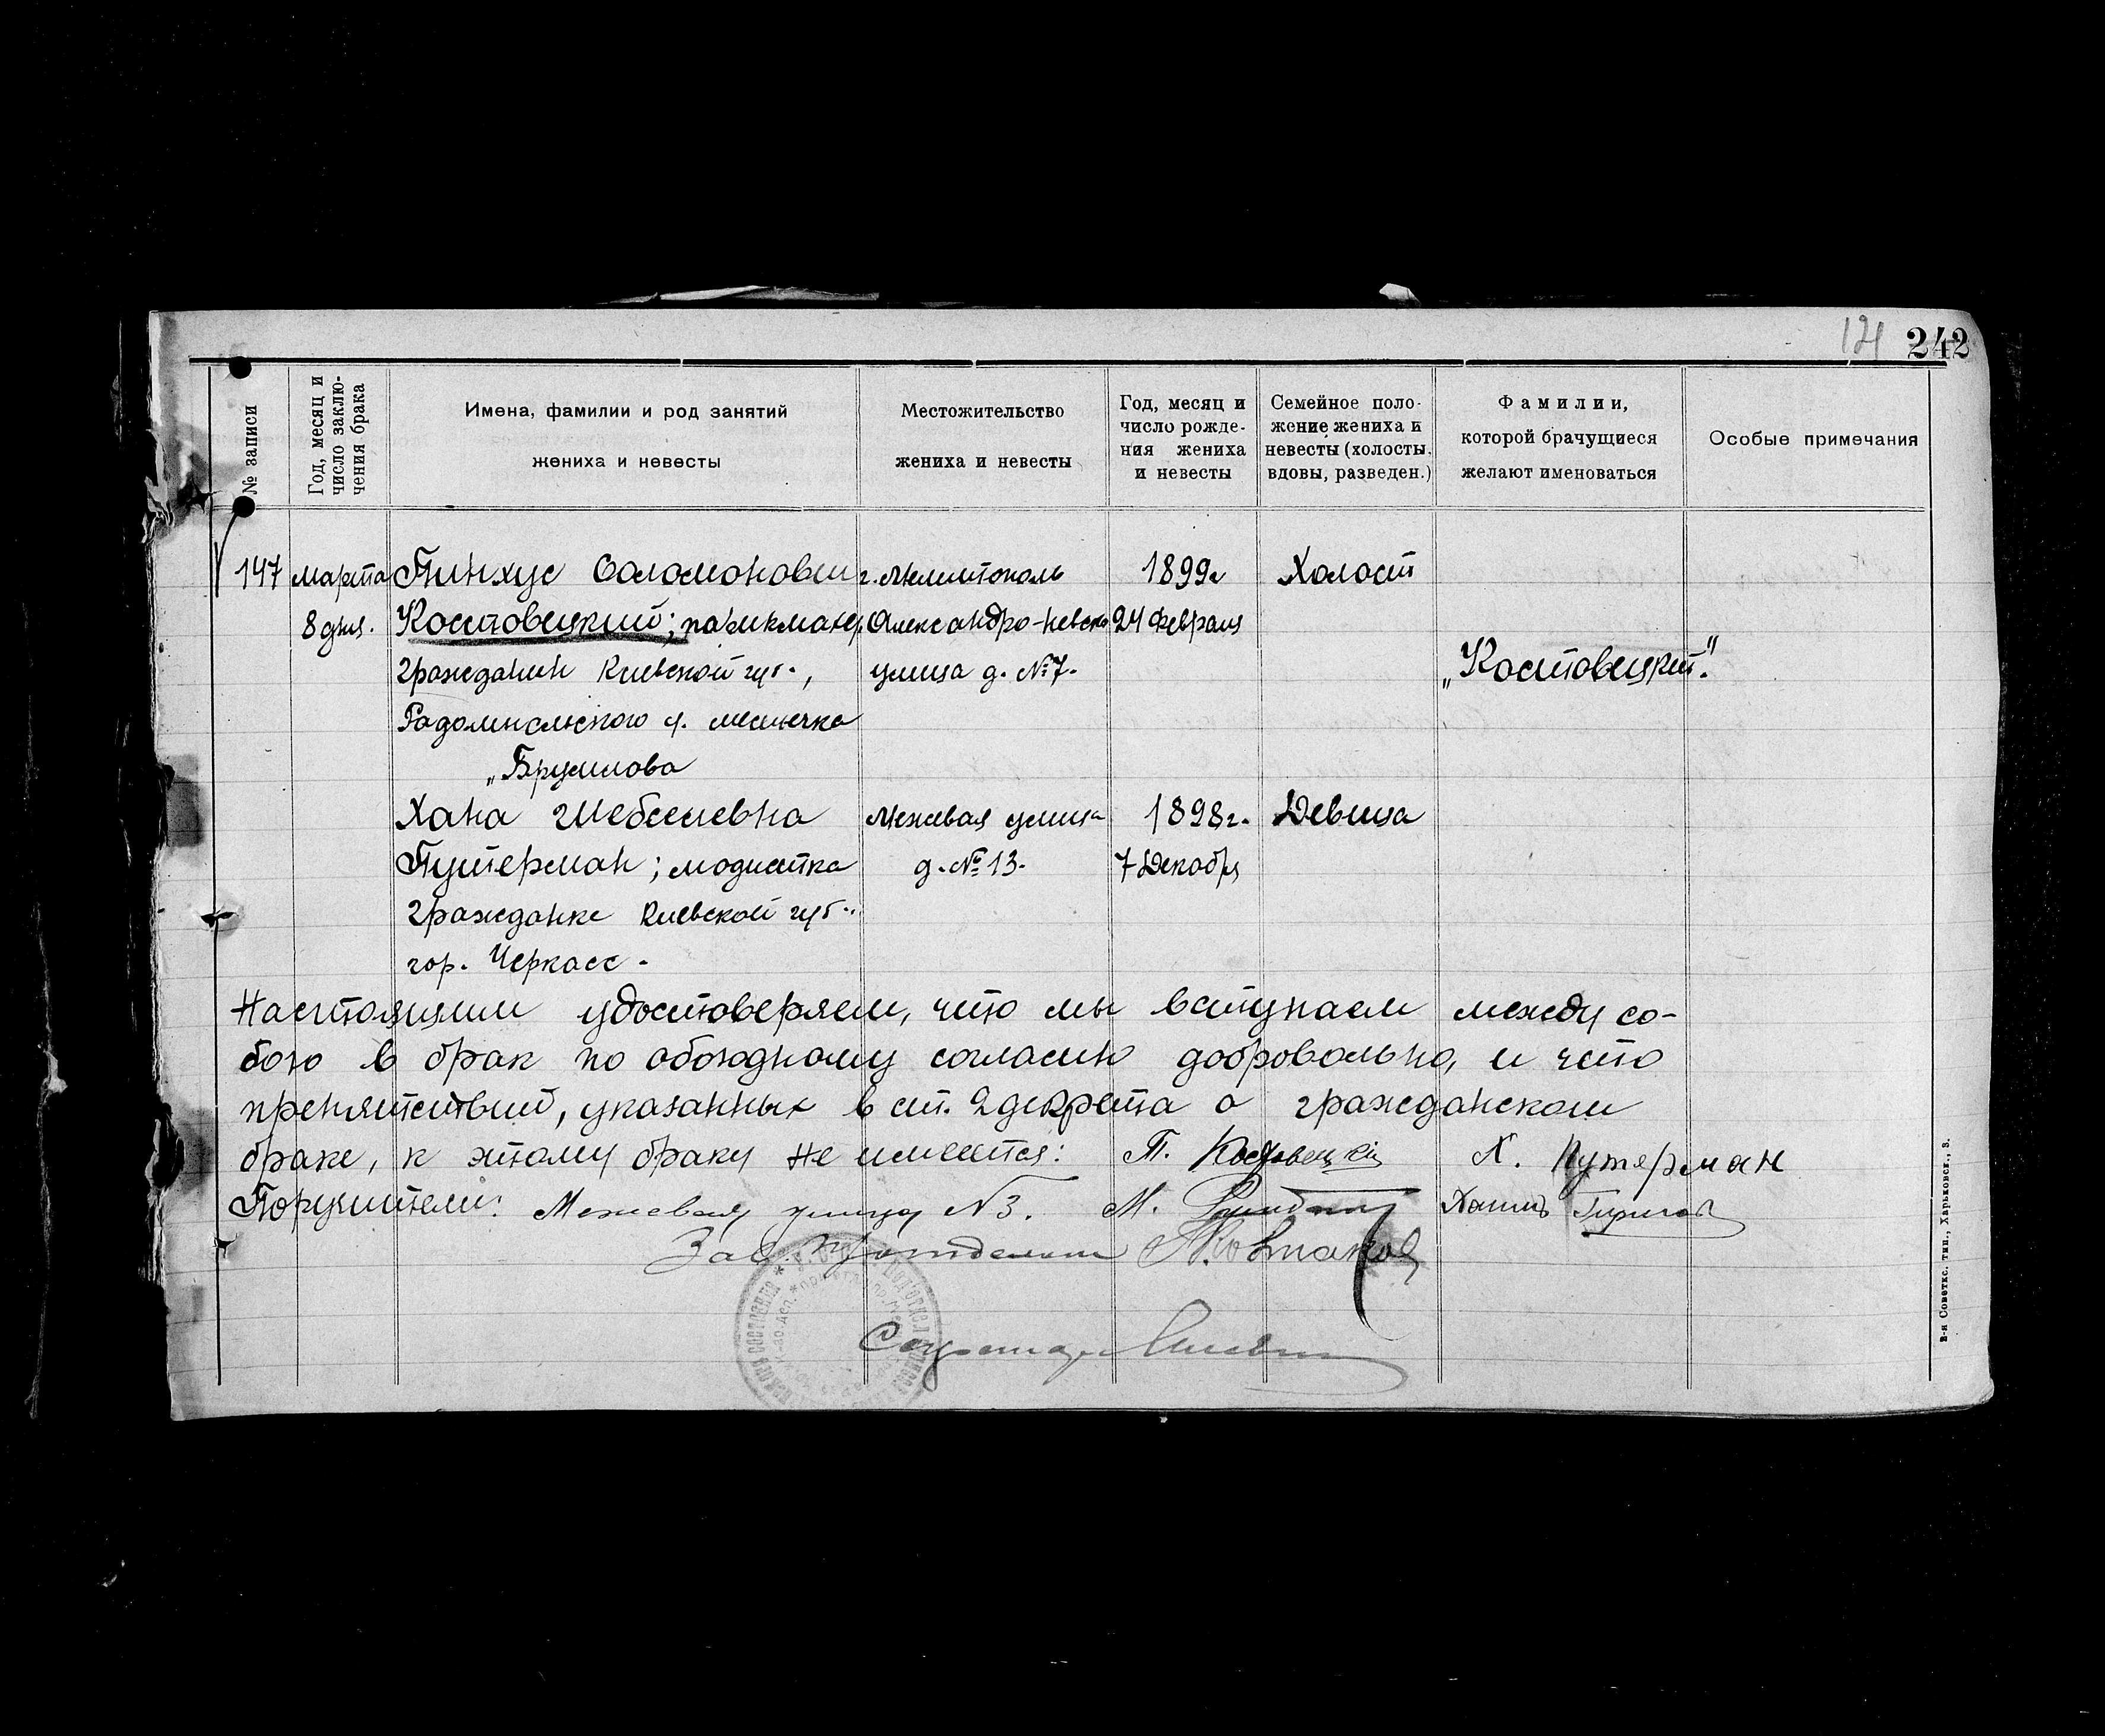 121 242
№ записи
Год, месяц и
число заклю-
чения брака
Имена, фамилии и род занятий
жениха и невесты
Местожительство
жениха и невесты
Год, месяц и
число рожде-
ния жениха
и невесты
Семейное поло-
жение жениха и
невесты (холосты,
вдовы, разведен.)
Фамилии,
которой брачущиеся
желают именоваться
Особые примечания
147 марта Пинхус Соломонович г. Мелитополь 1899г Холост
8 дня. Костовецкий; парикмахер, Александро-Невска 24 Февраля
гражданин Киевской губ., улица д. №7. „Костовецкий."
Радомысльского у. местечка
„Брусилова
Хана Шебселевна Межевая улица 1898г. Девица
Путерман; модистка д. № 13. 7 Декабря
гражданка Киевской губ.,
гор. Черкасс.
Настоящим удостоверяем, что мы вступаем между со-
бою в брак по обоюдному согласию добровольно, и что
препятствий, указанных в ст. 2 декрета о гражданском
браке, к этому браку не имеется: П. Костовецкий Х. Путерман
Поручители: Межевая улица №3. М. Хаим
Зав. Подотделом
Секретарь
2-я Советск. тип., Харьковск., 3.